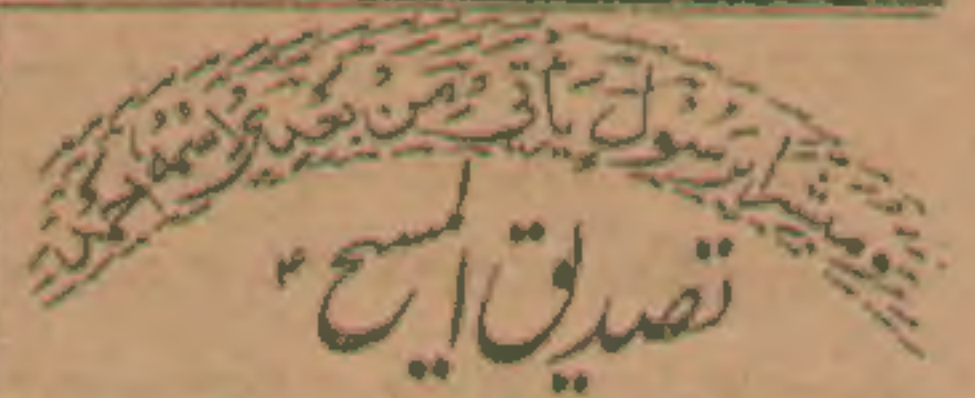 ومبشرا برسول یاتی من بعدی اسمہ احمد
تصدیق المسیح